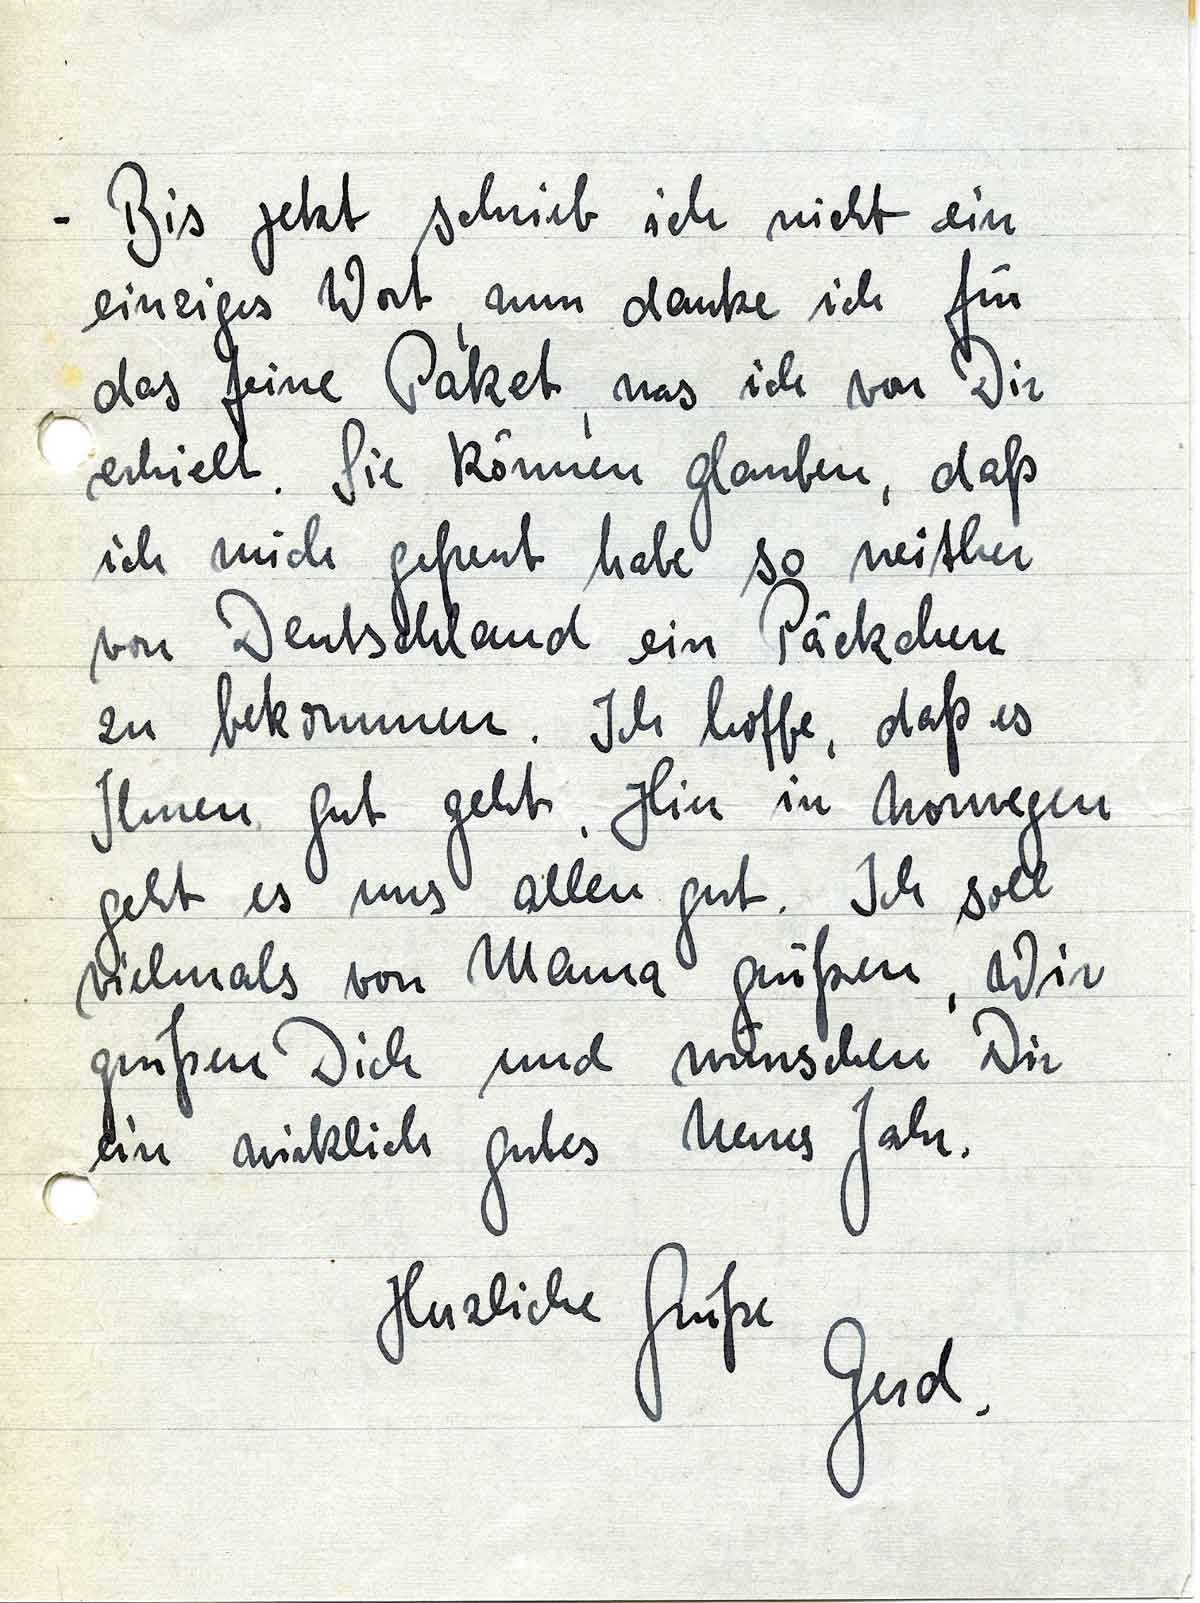 - Bis jetzt schrieb ich nicht ein
einziges Wort, nun danke ich für
das feine Päket, was ich von Dir
erhielt. Sie können glauben, daß
ich mich gefreut habe so weither
von Deutschland ein Päckchen
zu bekommen. Ich hoffe, daß es
Ihnen gut geht. Hier in Norwegen
geht es uns allen gut. Ich soll
vielmals von Mama grüßen, Wir
grüßen Dich und wünschen Dir
ein wirklich gutes Neues Jahr.
Herzliche Grüße
Gerd.